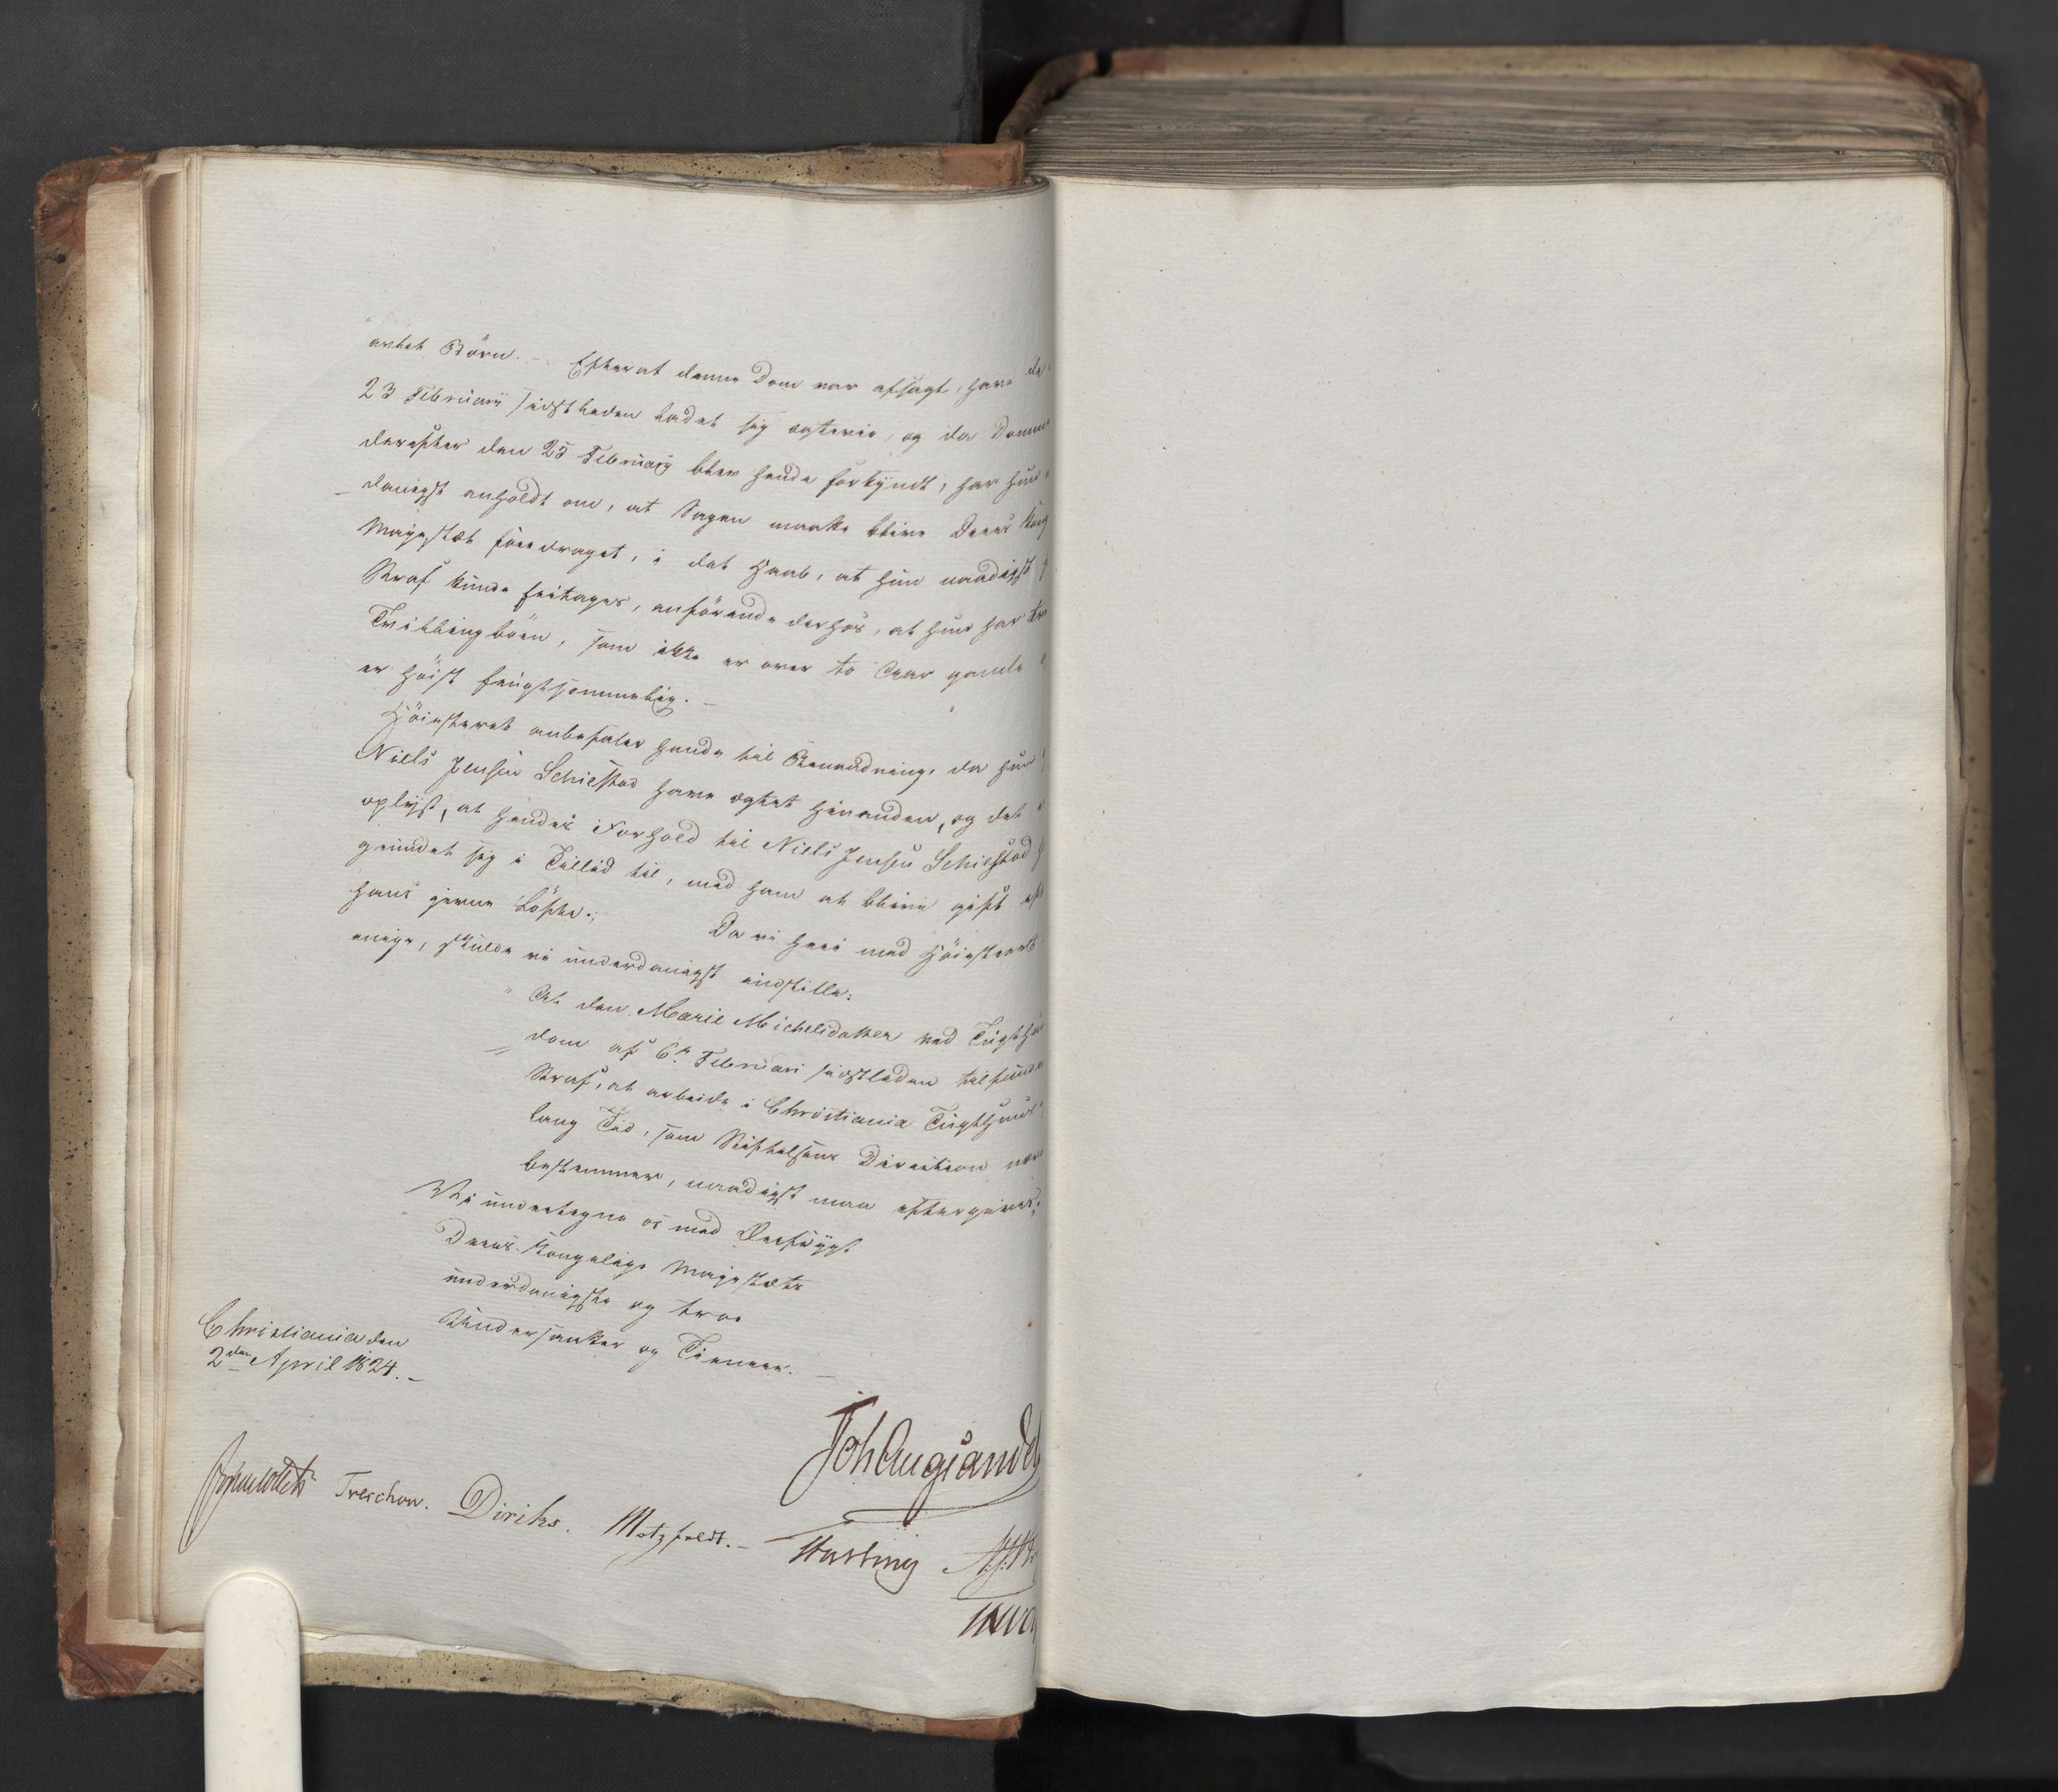 avlet Börn. – Efterat denne Dom var afsagt, have de
23 Februarii sidstleden ladet sig ægtevie, og da Dommen
derefter den 25 Februarij blev hende forkyndt, har hun
danigst anholdt om, at Sagen maatte blive Deres Kong
Majestæt foredraget, i det Haab, at hun naadigst
Straf kunde fritages, anförende derhos, at hun har
Tvillingbörn, som ikke er over to Aar gamle
er höist frugtsommelig. –
Höiesteret anbefaler hende til Benaadning, da hun
Niels Jensen Schiestad have ægtet hinanden, og det
oplyst, at hendes Forhold til Niels Jensen Schiestad
grundet sig i Tillid til, med ham at blive gift
hans givne Löfte.
Da vi heri med Höiesteret
enige, skulde vi underdanigst indstille:
"At den Marie Michelsdatter ved
dom af 6te Februari sidstleden
Straf, at arbeide i Christiania Tugthuus
lang Tid, som Stiftelsens Direction
bestemmer, naadigst maa eftergives;
Vi undertegne os med Ærefrygt
Deres Kongelige Majestæts
underdanigste og troe
Undersaatter og Tienere. –
Christiania den
2den April 1824. –
Joh Aug Sandels
Treschow. Diriks. Motzfeldt. –